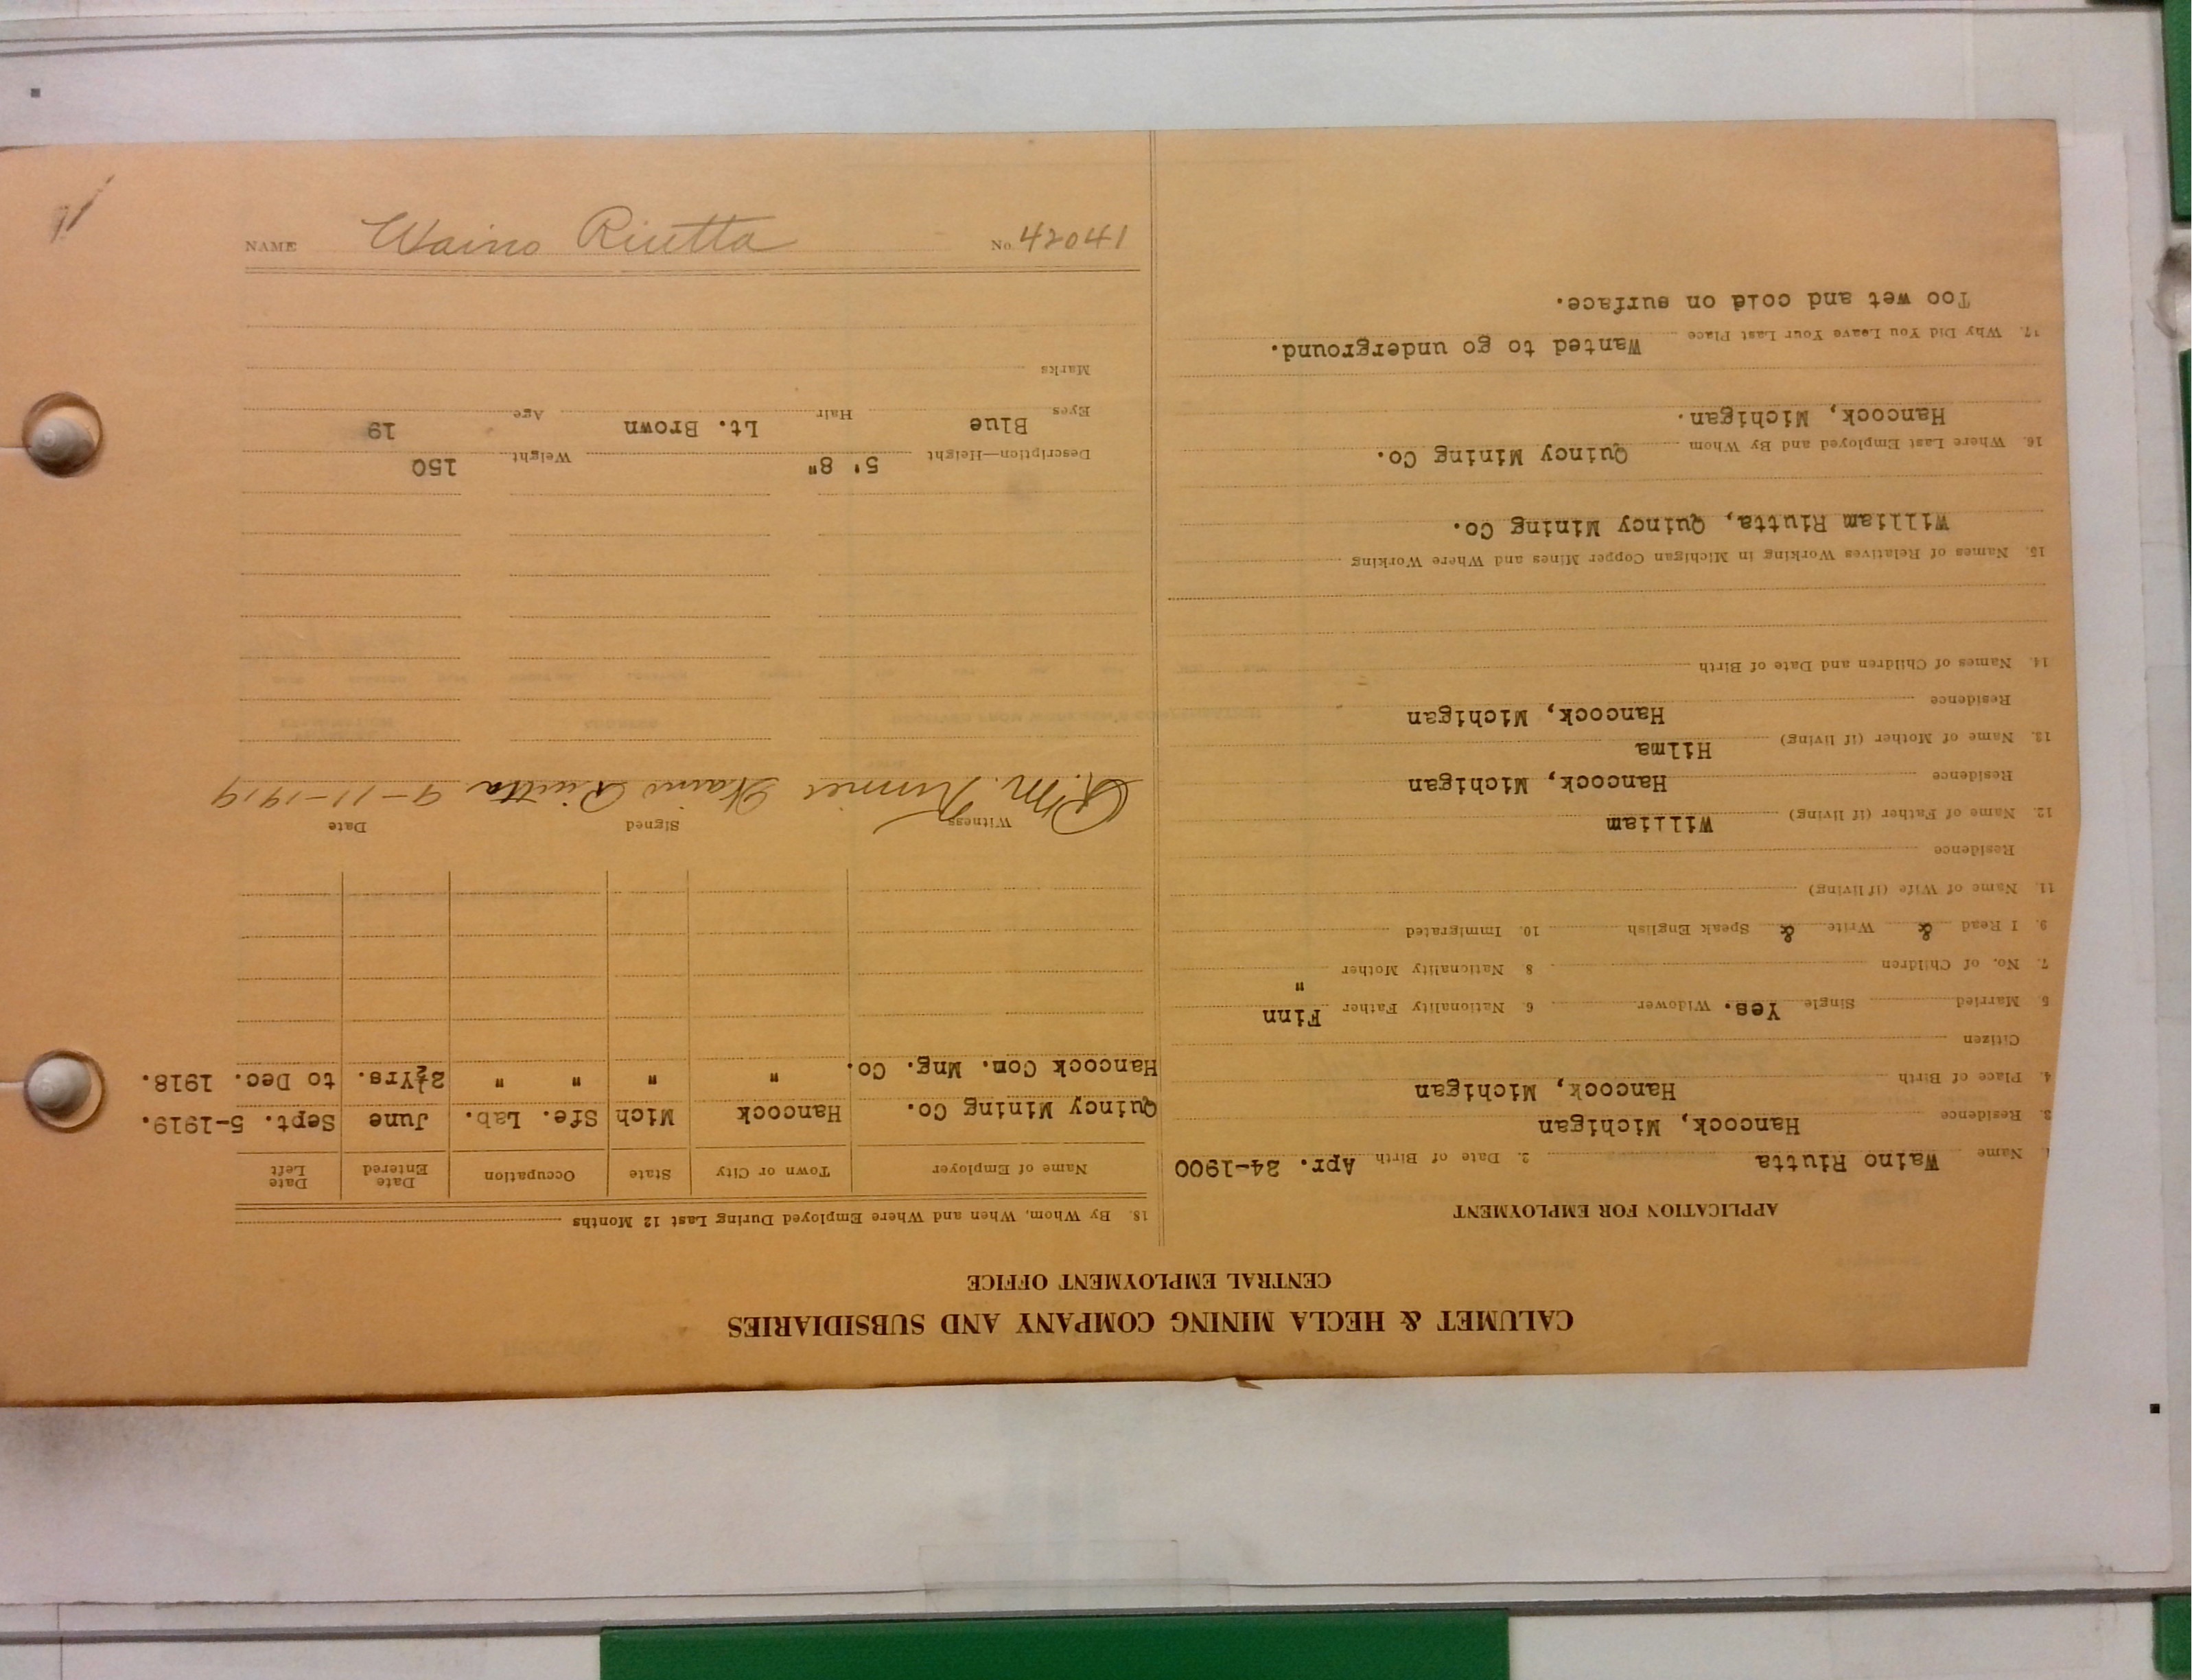 CALUMET & HECLA MINING COMPANY AND SUBSIDIARIES
CENTRAL EMPLOYMENT OFFICE
APPLICATION FOR EMPLOYMENT
1. Name Waino Riutta 2. Date of Birth Apr. 24-1900
3. Residence Hancock, Michigan
4. Place of Birth Hancock, Michigan
Citizen
5. Married Single Yes. Widower 6. Nationality Father Finn
7. No. of Children 8 Nationality Mother "
9. I Read & Write & Speak English 10. Immigrated
11. Name of Wife (if living)
Residence
12. Name of Father (if living) William
Residence Hancock, Michigan
13. Name of Mother (if living) Hilma
Residence Hancock, Michigan
14. Names of Children and Date of Birth
15. Names of Relatives Working in Michigan Copper Mines and Where Working
William Riutta, Quincy Mining Co.
16. Where Last Employed and By Whom Quincy Mining Co.
Hancock, Michigan.
17. Why Did You Leave Your Last Place Wanted to go underground.
Too wet and cold on surface.
18. By Whom, When and Where Employed During Last 12 Months
Name of Employer Town or City State Occupation Date Entered Date Left
Quincy Mining Co. Hancock Mich Sfe. Lab. June Sept. 5-1919.
Hancock Con. Mng. Co. " " " " 2½Yrs. to Dec. 1918.
Witness Signed Date
Waino Riutta 9-11-1919
Description—Height 5' 8" Weight 150
Eyes Blue Hair Lt. Brown Age 19
Marks
NAME Waino Riutta No. 42041